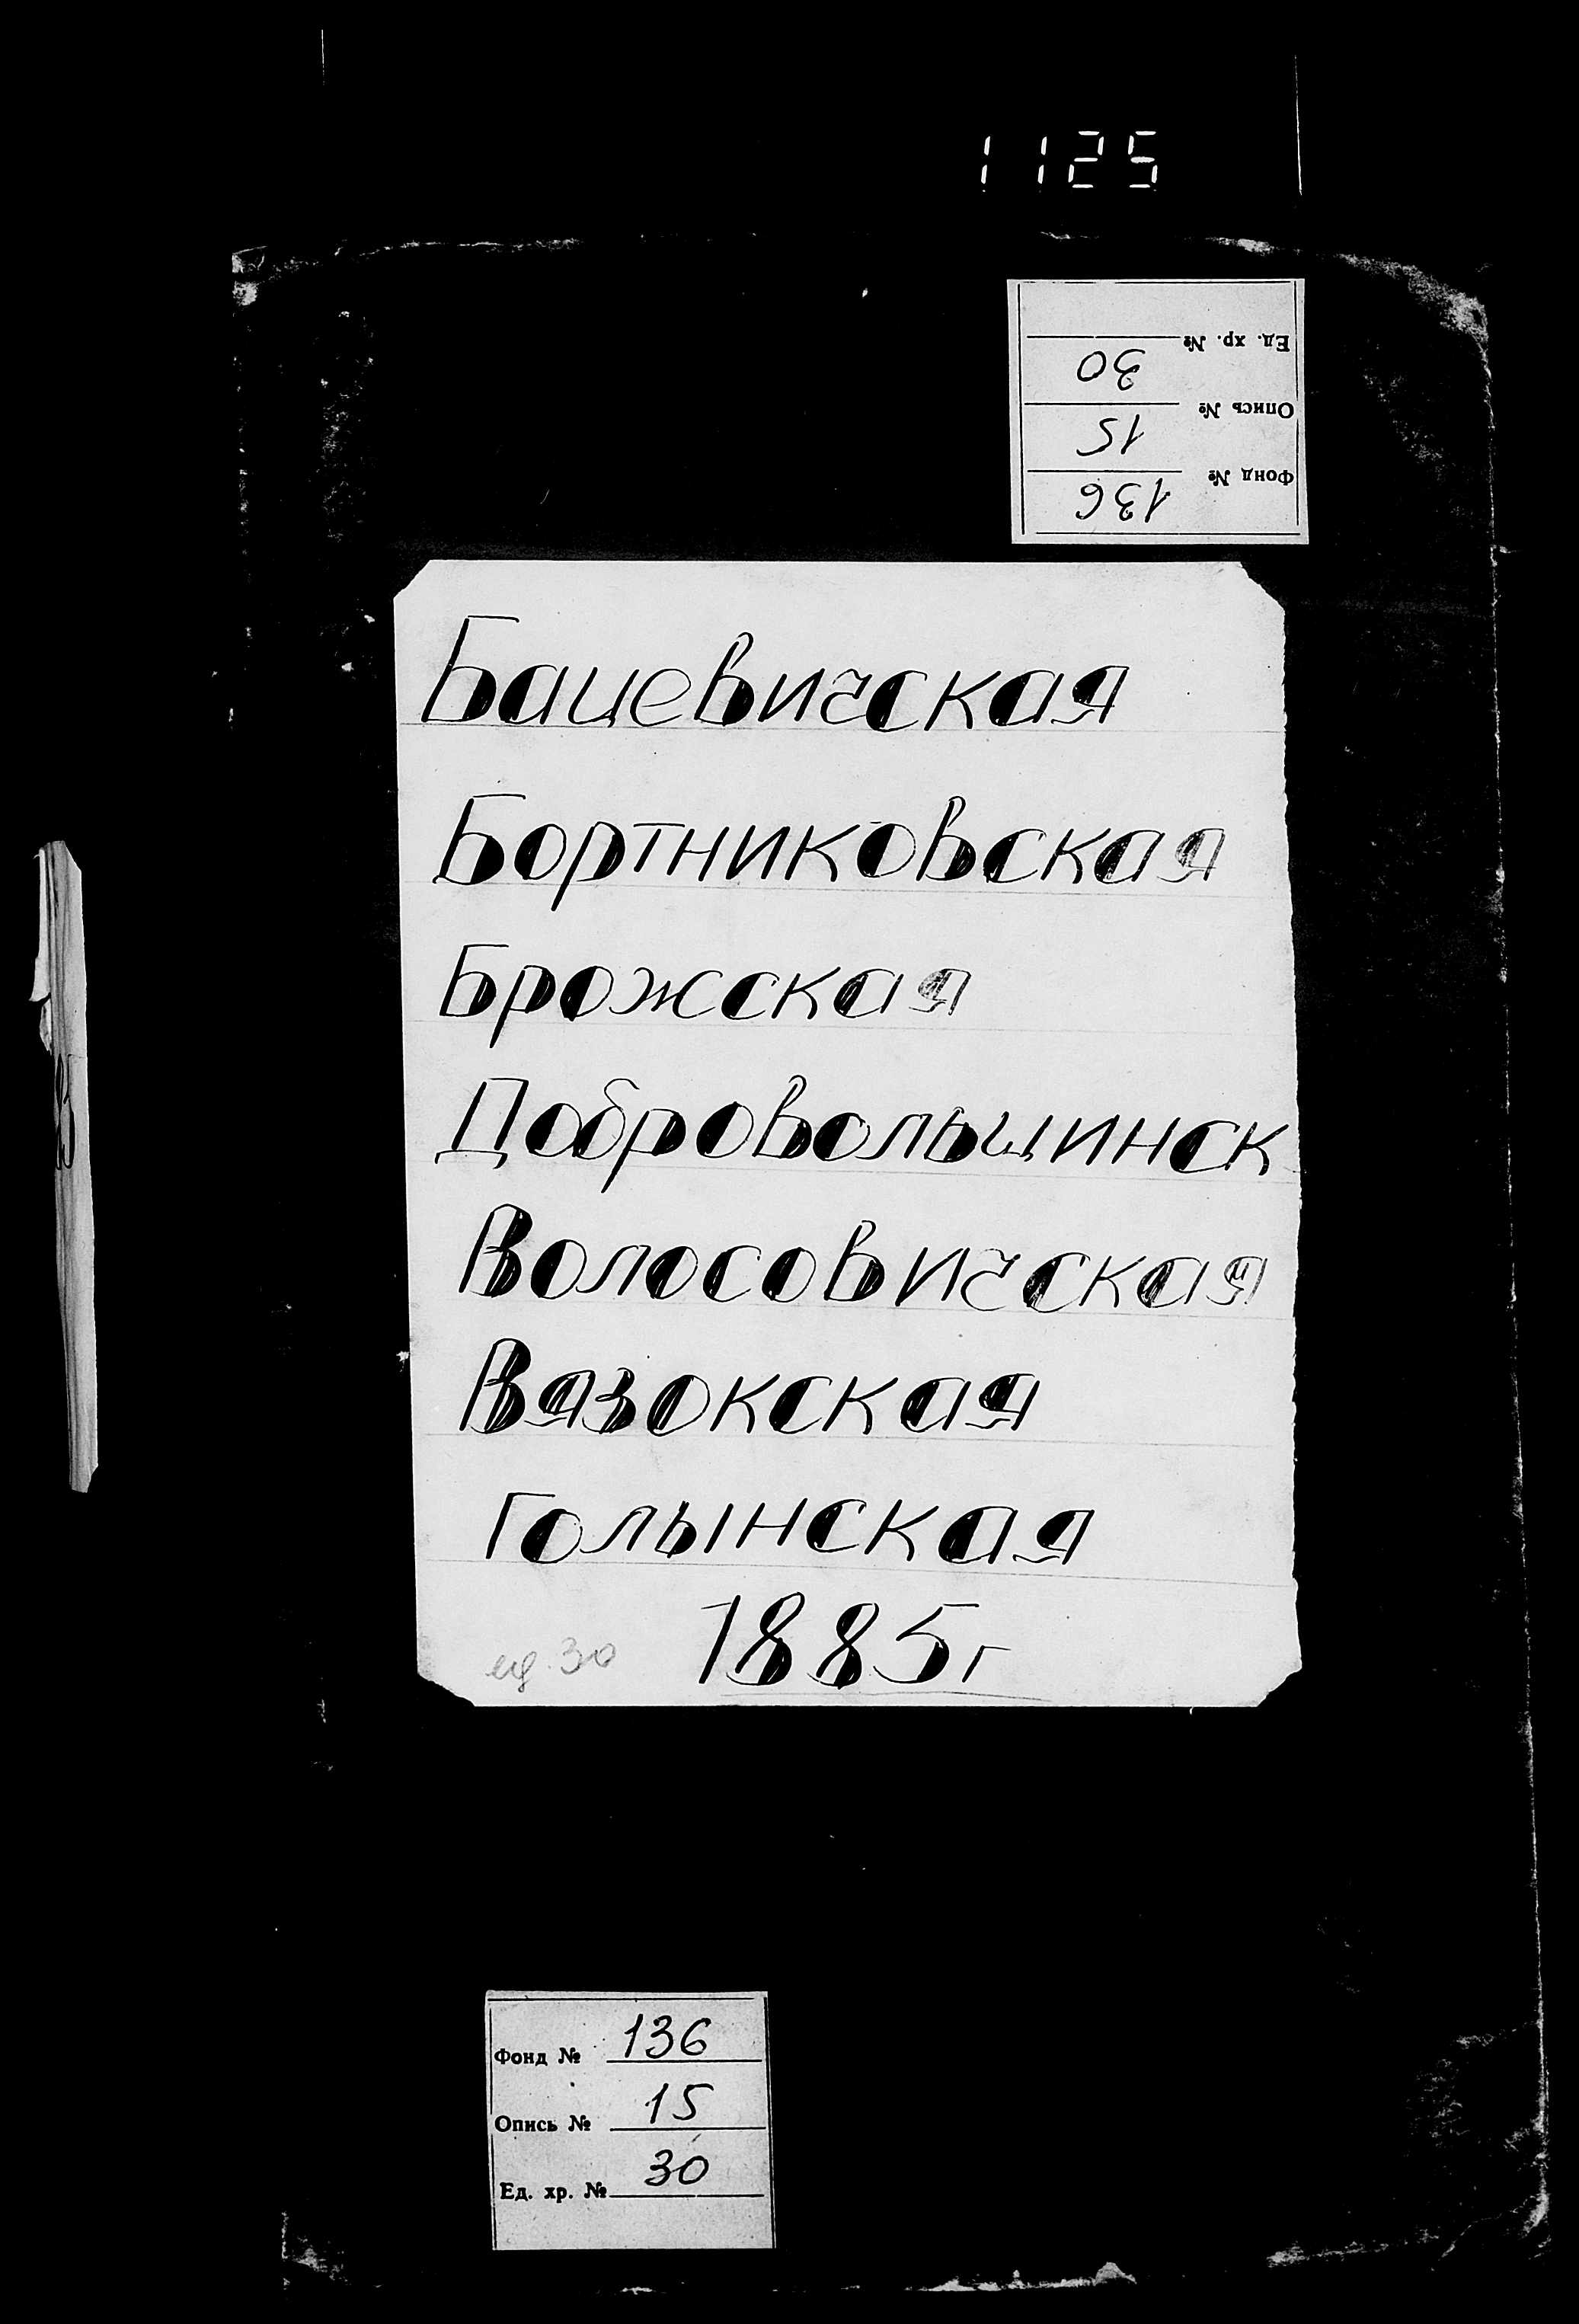 1125
Ед. хр. № 30
Опись № 15
Фонд № 136
Бацевичская
Бортниковская
Брожская
Добровольщинск
Волосовичская
Вязокская
Голынская
1885г
ед. 30
Фонд № 136
Опись № 15
Ед. хр. № 30